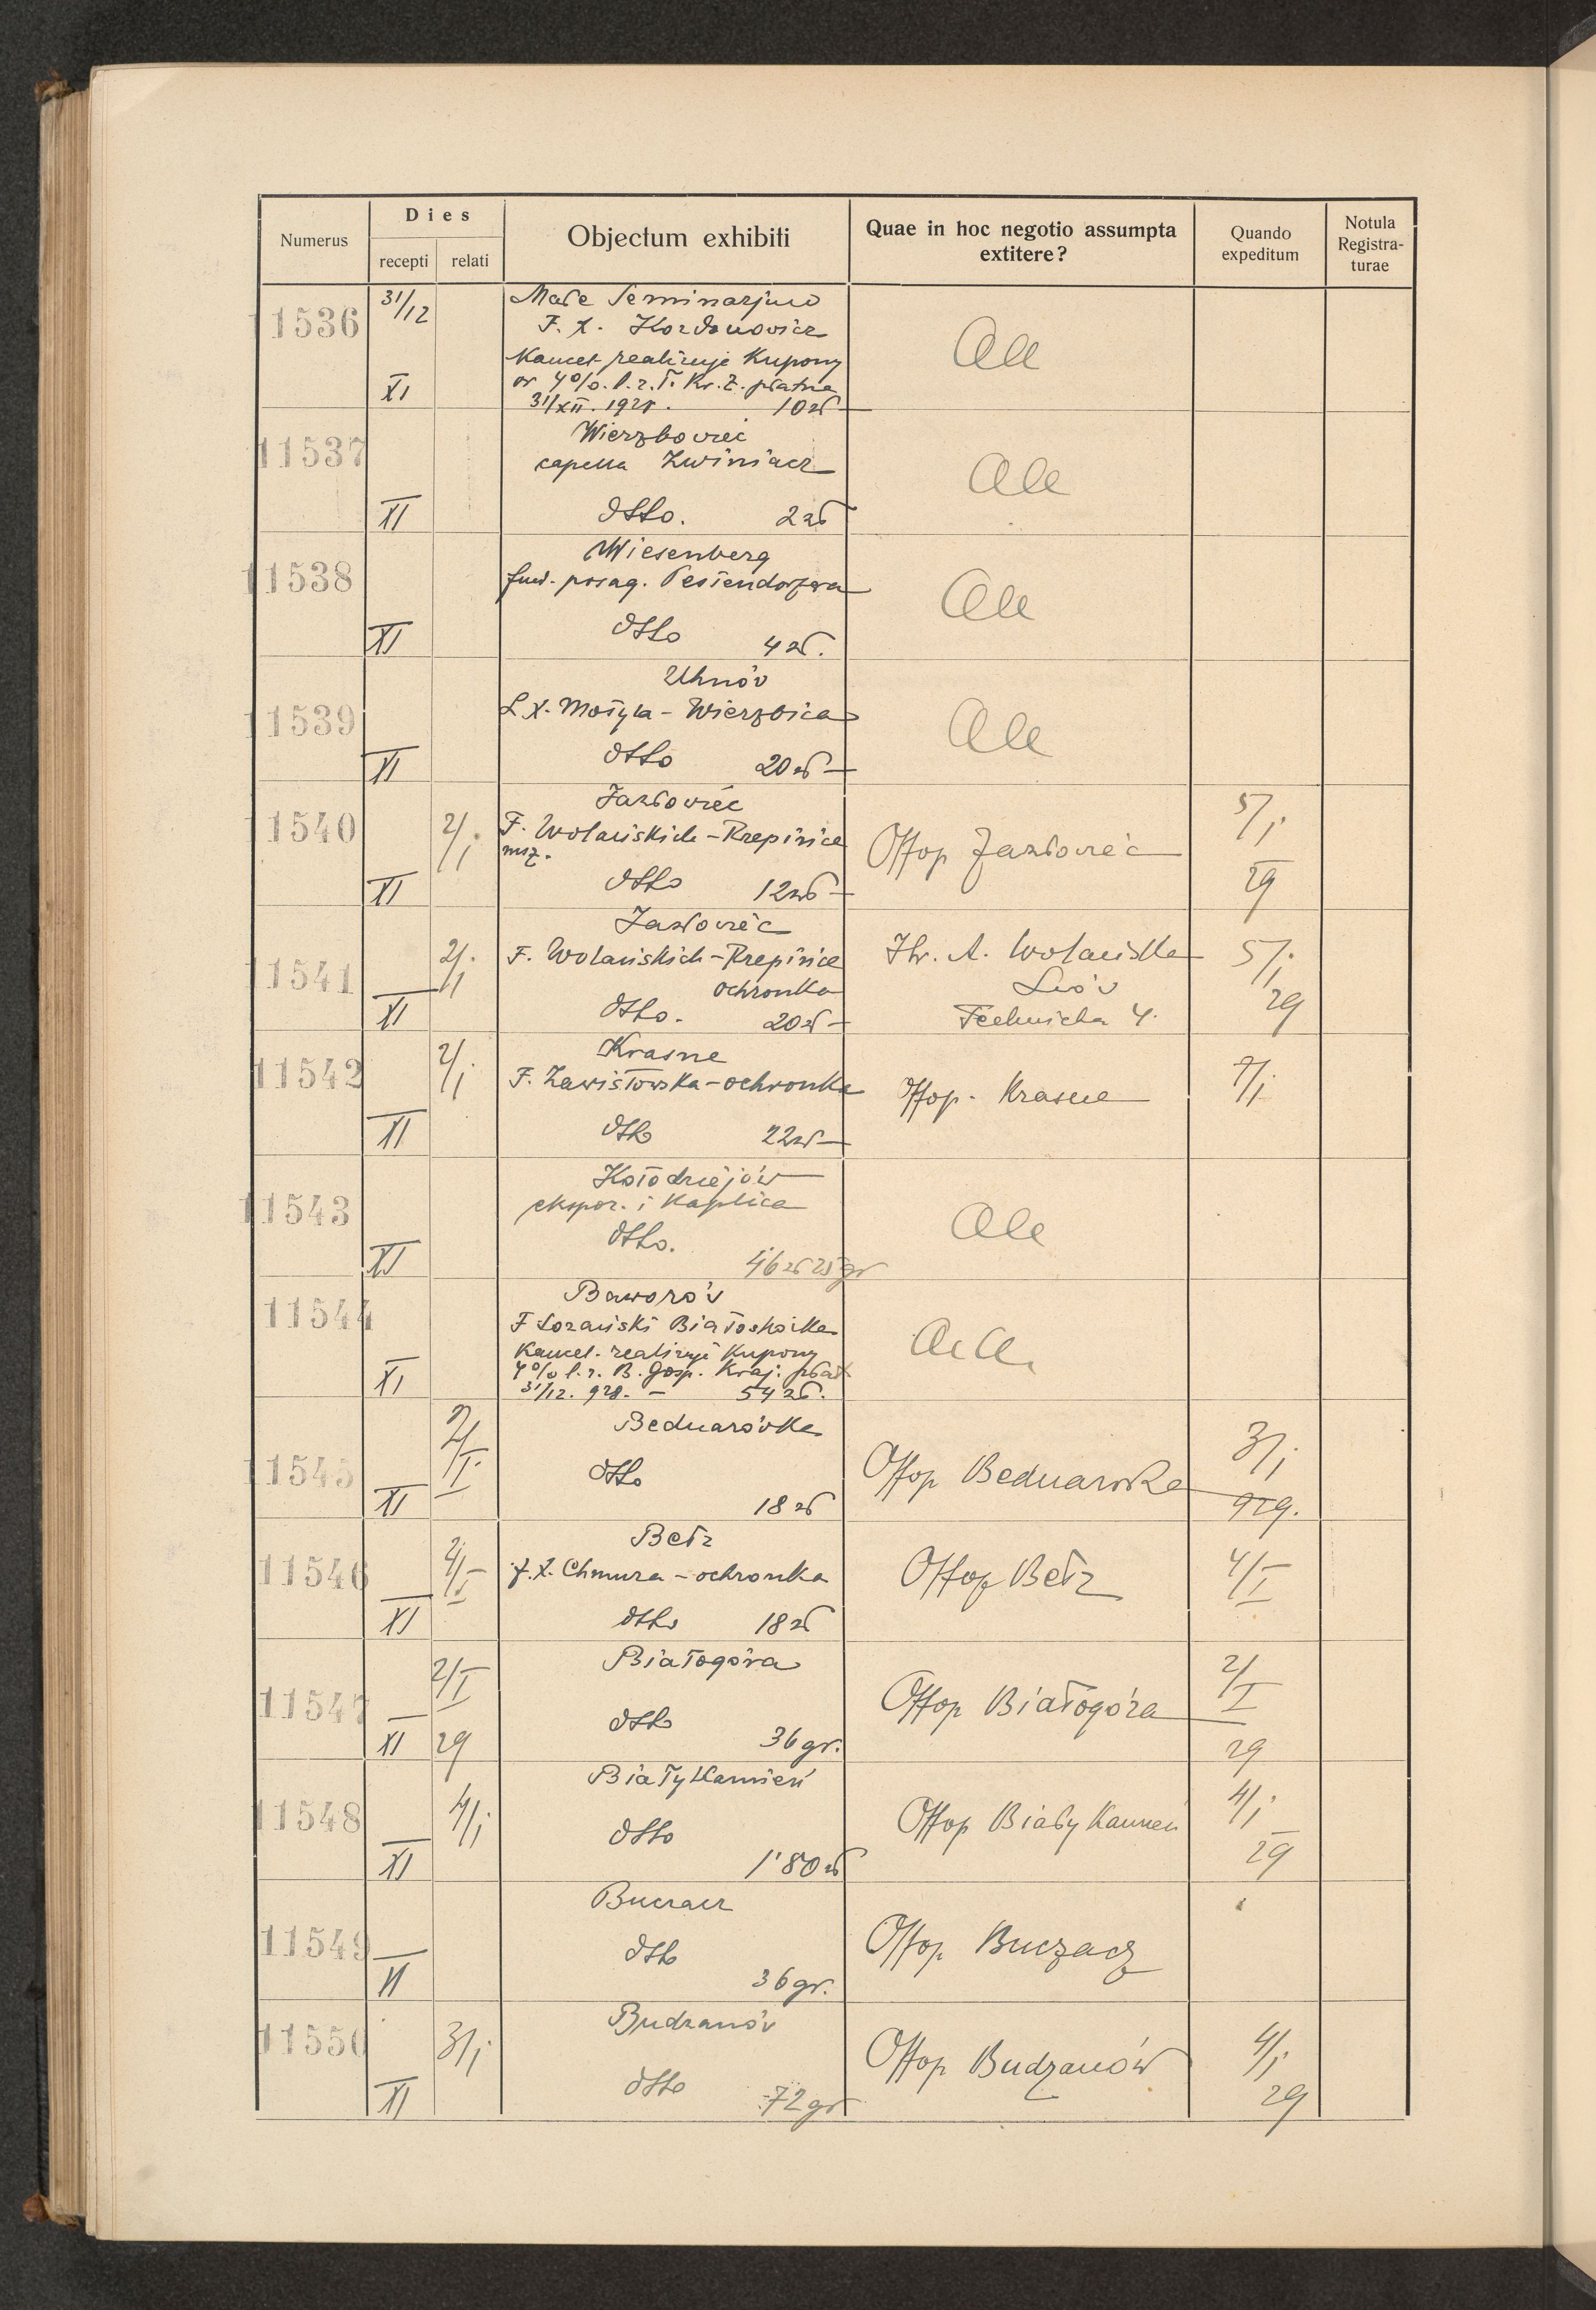 Numerus
Dies
recepti
relati
Objectum exhibiti
Quae in hoc negotio assumpta
extitere?
Quando
expeditum
Notula
Registra-
turae
11536
31/12
XI
Małe Seminarjum
F. X.
Kancel. realizuje Kupony
4% l. z. T. Kr. Z. płatne
31/XII. 1928. 10 zł
Alla
11537
XI
Wierzbowiec
capella Zwiniacz
dtto. 2 zł
Alla
11538
XI
Wiesenberg
fund. posag.
dtto
4 zł.
Alla
11539
XI
Uhnów
Motyka - Wierzbica
dtto 20 zł
Alla
11540
XI
2/1
Jazłowiec
F. Wolańskich - Rzepińce
msz.
dtto 12 zł
Offop Jazłowiec
5/1
29
11541
XI
2/1
Jazłowiec
F. Wolańskich - Rzepińce
ochronka
dtto. 20 zł
Hr. A. Wolańska
Lwów
Technicka 4.
5/1
29
11542
XI
2/1
Krasne
F. Zawistowska - ochronka
dtto 22 zł
Offop. Krasne
7/1
11543
XI
Kołodziejów
ekspoz. i Kaplica
dtto.
46 zł 25 gr
Alla
11544
XI
Baworów
F Łozański Białoskórka
Kancel. realizuje Kupony
4% l. z. B. Gosp. Kraj. płat
31/12. 928. - 54 zł.
Alla
11545
XI
2/I
Bednarówka
dtto
18 zł
Offop Bednarówka
3/1
929.
11546
XI
2/I
Bełz
f. X. Chmura - ochronka
dtto 18 zł
Offop Bełz
4/I
11547
XI
2/I
29
Białogóra
dtto
36 gr.
Offop Białogóra
2/I
29
11548
XI
4/1
Biały Kamień
dtto
1'80 zł
Offop Biały Kamień
4/1
29
11549
XI
Buczacz
dtto
36 gr.
Offop Buczacz
11550
XI
3/1
Budzanów
dtto
72 gr
Offop Budzanów
4/1
29